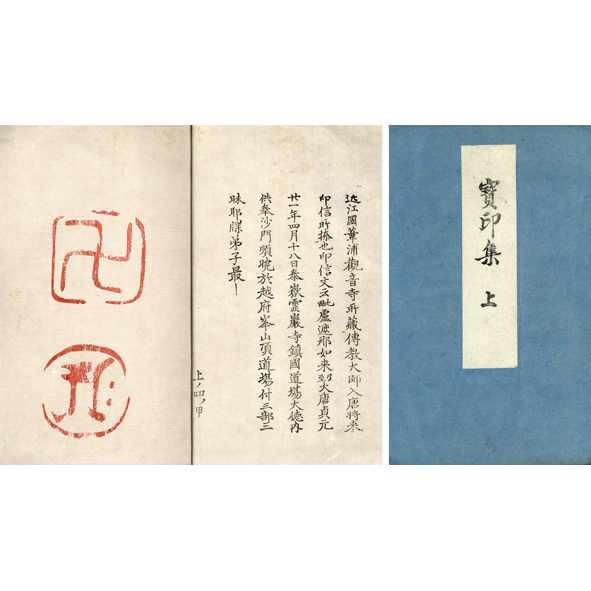 寶印集 上
近江國葦浦觀音寺所藏傳教大師入唐將来
印信所捺也印信文云毗盧遮那如来到大唐貞元
廿一年四月十八日泰嶽靈巖寺鎮國道場大德内
供奉沙門順暁於越府峯山頂道場付三部三
昧耶牒弟子最
上ノ四ノ甲
卍